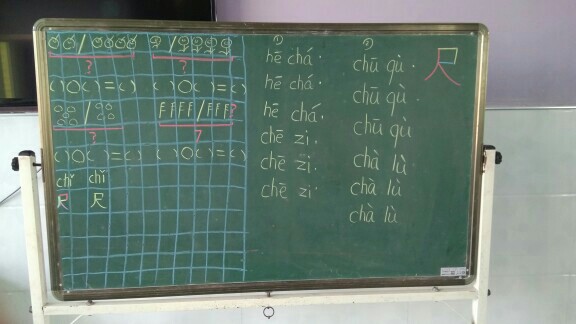 ? ?
( )○( )=( ) ( )○( )=( )
FFFF/FFF?
? ?
( )○( )=( ) ( )○( )=( )
chǐ chǐ
尺 尺
① 
hē chá.
hē chá.
hē chá.
chē zi.
chē zi.
chē zi.
①
chū qù.
chū qù.
chū qù
chà lù
chà lù
chà lù
尺